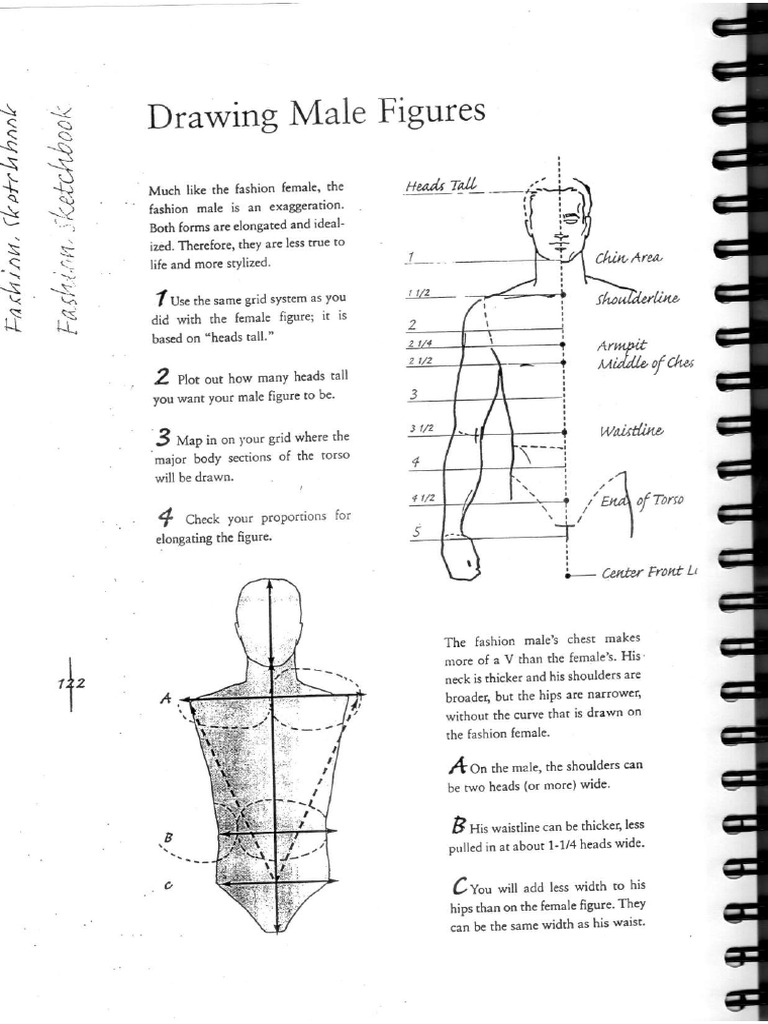 Fashion. Sketchbook
Fashion. Sketchbook
Drawing Male Figures
Much like the fashion female, the
fashion male is an exaggeration.
Both forms are elongated and ideal-
ized. Therefore, they are less true to
life and more stylized.
1 Use the same grid system as you
did with the female figure; it is
based on “heads tall.”
2 Plot out how many heads tall
you want your male figure to be.
3 Map in on your grid where the
major body sections of the torso
will be drawn.
4 Check your proportions for
elongating the figure.
Heads Tall
1 Chin Area
1 1/2 Shoulderline
2
2 1/4 Armpit
2 1/2 Middle of Ches
3
3 1/2 Waistline
4
4 1/2 End of Torso
5
Center Front Li
122
A
B
C
The fashion male’s chest makes
more of a V than the female’s. His
neck is thicker and his shoulders are
broader, but the hips are narrower,
without the curve that is drawn on
the fashion female.
A On the male, the shoulders can
be two heads (or more) wide.
B His waistline can be thicker, less
pulled in at about 1-1/4 heads wide.
C You will add less width to his
hips than on the female figure. They
can be the same width as his waist.